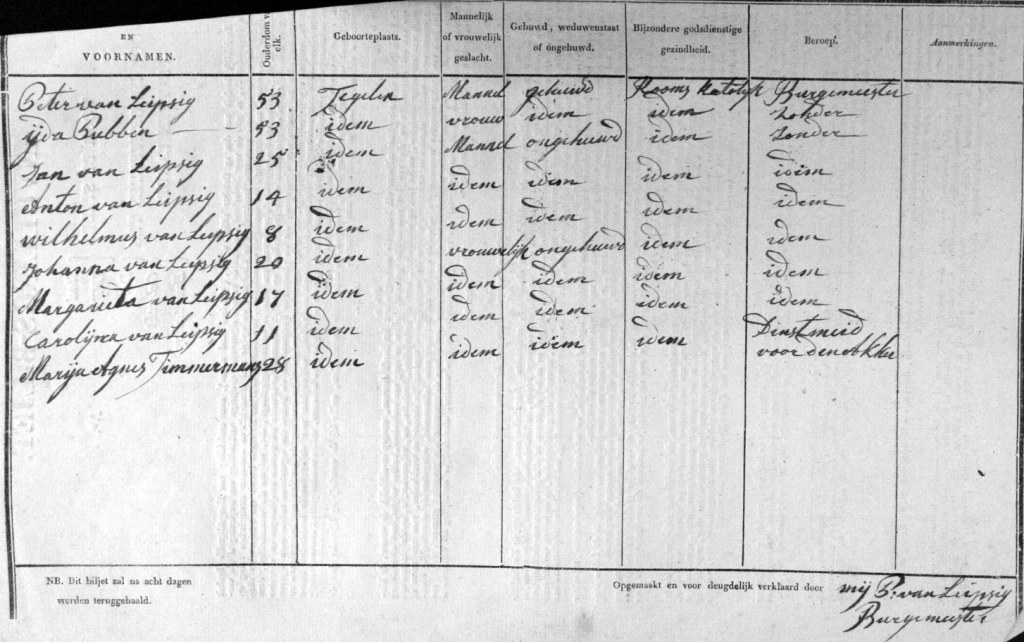 EN VOORNAMEN. Ouderdom van elk. Geboorteplaats. Mannelijk of vrouwelijk geslacht. Gehuwd, weduwenstaat of ongehuwd. Bijzondere godsdienstige gezindheid. Beroep. Aanmerkingen.
Peter van Leipsig 53 Tegelen Mannel gehuwd Rooms Katolyk Burgemeester
ijda Bubben 53 idem vrouw idem idem Zonder
Jan van Leipsig 25 idem Mannel ongehuwd idem Zonder
Anton van Leipsig 14 idem idem idem idem idem
Wilhelmus van Leipsig 8 idem idem idem idem idem
Johanna van Leipsig 20 idem vrouwelijk ongehuwd idem idem
Margarieta van Leipsig 17 idem idem idem idem idem
Carolijna van Leipsig 11 idem idem idem idem idem
Marija Agnes Timmermans 28 idem idem idem idem Dinstmeid
voor den Akker
NB. Dit biljet zal na acht dagen
worden teruggehaald.
Opgemaakt en voor deugdelijk verklaard door mij P. van Leipsig
Burgemeester